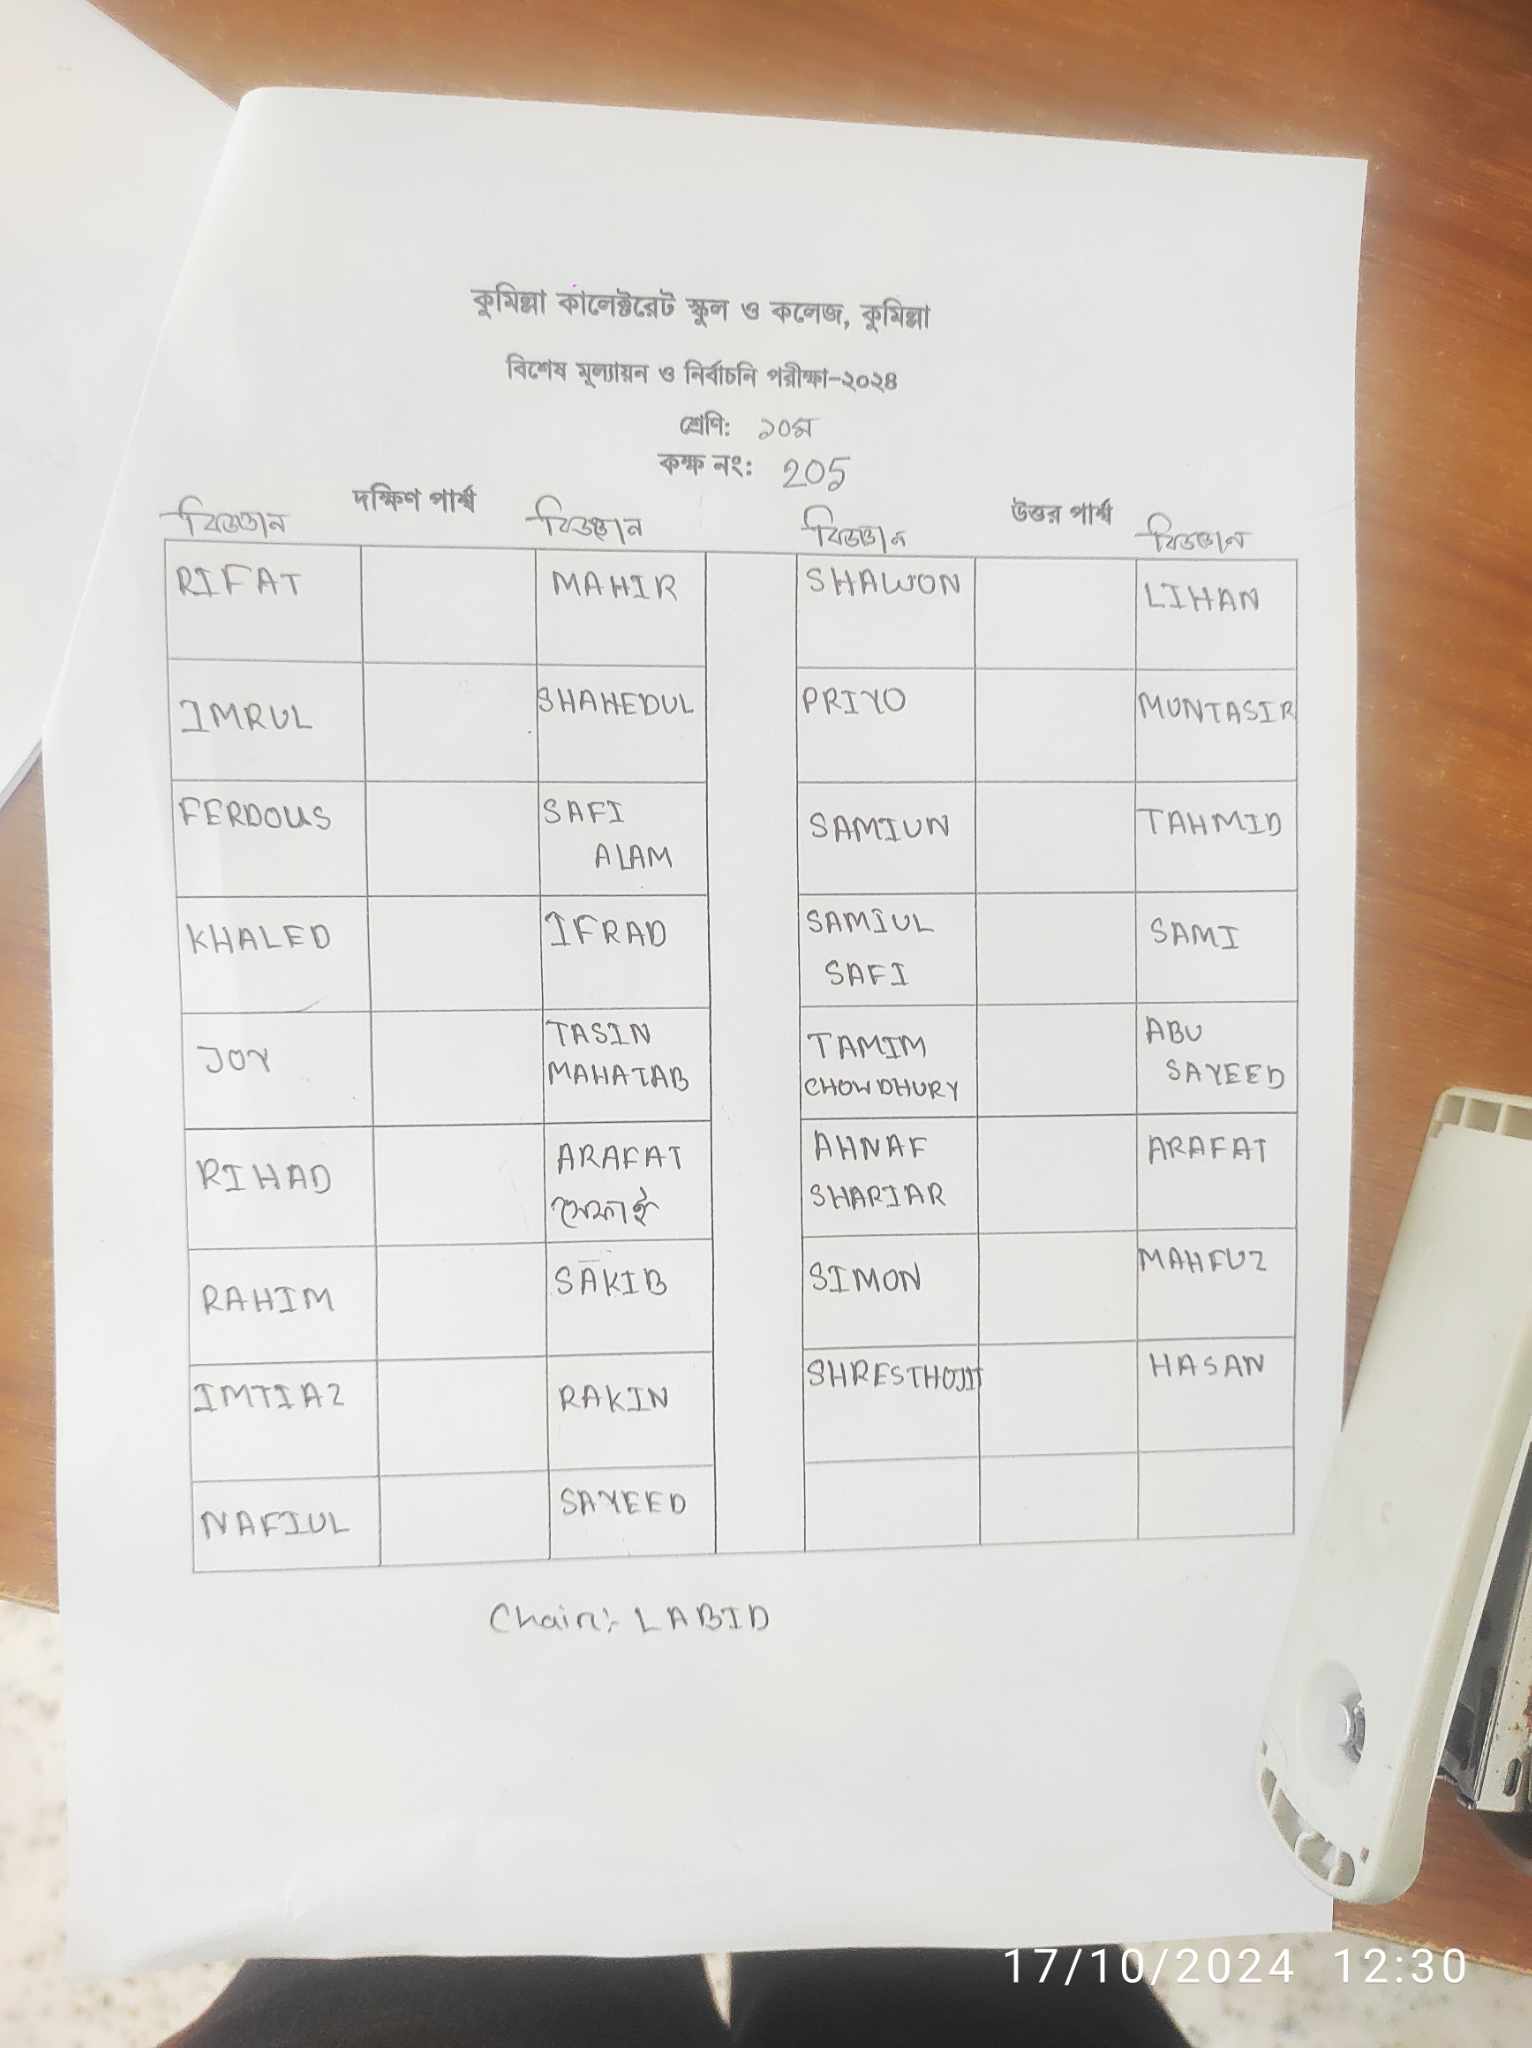 কুমিল্লা কালেক্টরেট স্কুল ও কলেজ, কুমিল্লা
বিশেষ মূল্যায়ন ও নির্বাচনি পরীক্ষা-২০২৪
শ্রেণি: ১০ম
কক্ষ নং: 205
দক্ষিণ পার্শ্ব উত্তর পার্শ্ব
বিজ্ঞান বিজ্ঞান বিজ্ঞান বিজ্ঞান
RIFAT MAHIR SHAWON LIHAN
IMRUL SHAHEDUL PRIYO MUNTASIR
FERDOUS SAFI SAMIUN TAHMID
ALAM
KHALED IFRAD SAMIUL SAMI
SAFI
JOY TASIN TAMIM ABU
MAHATAB CHOWDHURY SAYEED
RIHAD ARAFAT AHNAF ARAFAT
SHARIAR
RAHIM SAKIB SIMON MAHFUZ
IMTIAZ RAKIN SHRESTHOJIT HASAN
NAFIUL SAYEED
Chair:- LABID
17/10/2024 12:30